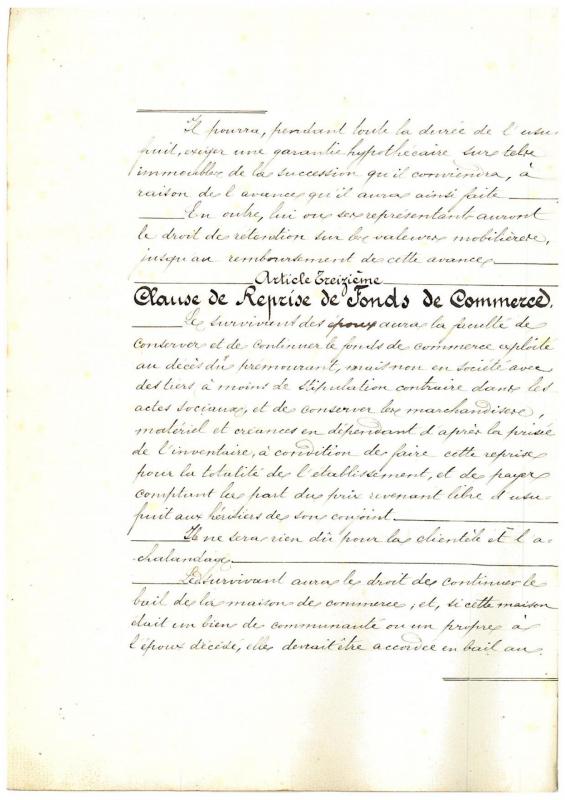 Il pourra, pendant toute la durée de l'usu
fruit, exiger une garantie hypothécaire sur tels
immeubles de la succession qu'il conviendra, à
raison de l'avance qu'il aura ainsi faite
En outre, lui ou ses représentant auront
le droit de rétention sur les valeurs mobilières,
jusqu'au remboursement de cette avance
Article Treizième
Clause de Reprise de Fonds de Commerce.
Le survivient des époux aura la faculté de
conserver et de continuer le fonds de commerce exploité
au décès du prémourant, mais non en société avec
des tiers à moins de stipulation contraire dans les
actes sociaux, et de conserver les marchandises,
matériel et créances en dépendant d'après la prisée
de l'inventaire, à condition de faire cette reprise
pour la totalité de l'etablissement, et de payer
comptant la part du prix revenant libre d'usu
fruit aux héritiers de son conjoint
Il ne sera rien dû pour la clientèle et l'a-
chalandage
Le survivant aura le droit de continuer le
bail de la maison de commerce; et, si cette maison
était un bien de communauté ou un propre à
l'époux décédé, elle devrait être accordée en bail au